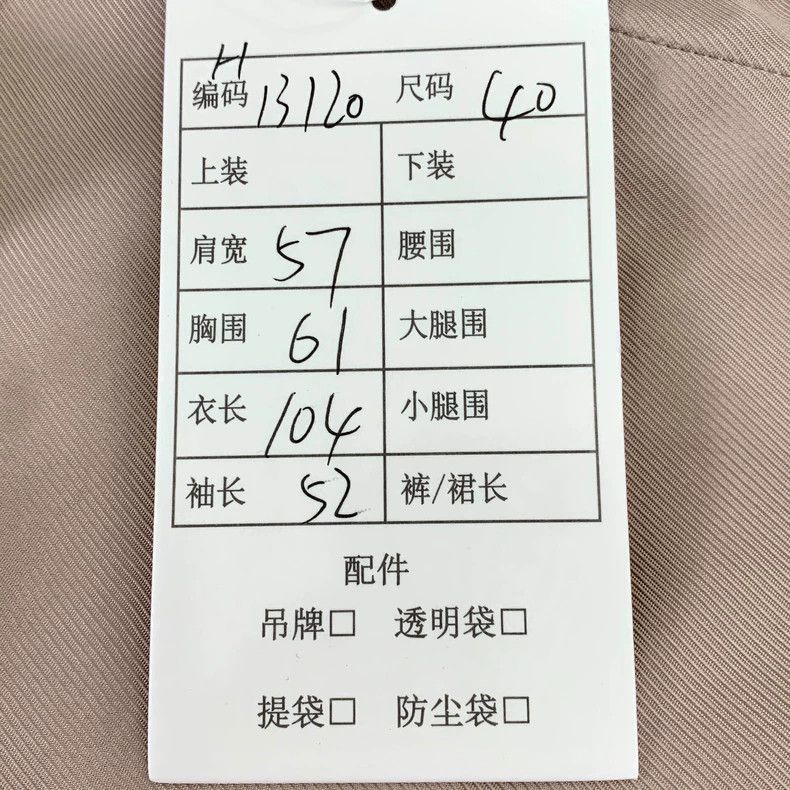 H
编码 13120 尺码 40
上装 下装
肩宽 57 腰围
胸围 61 大腿围
衣长 104 小腿围
袖长 52 裤/裙长
配件
吊牌□ 透明袋□
提袋□ 防尘袋□